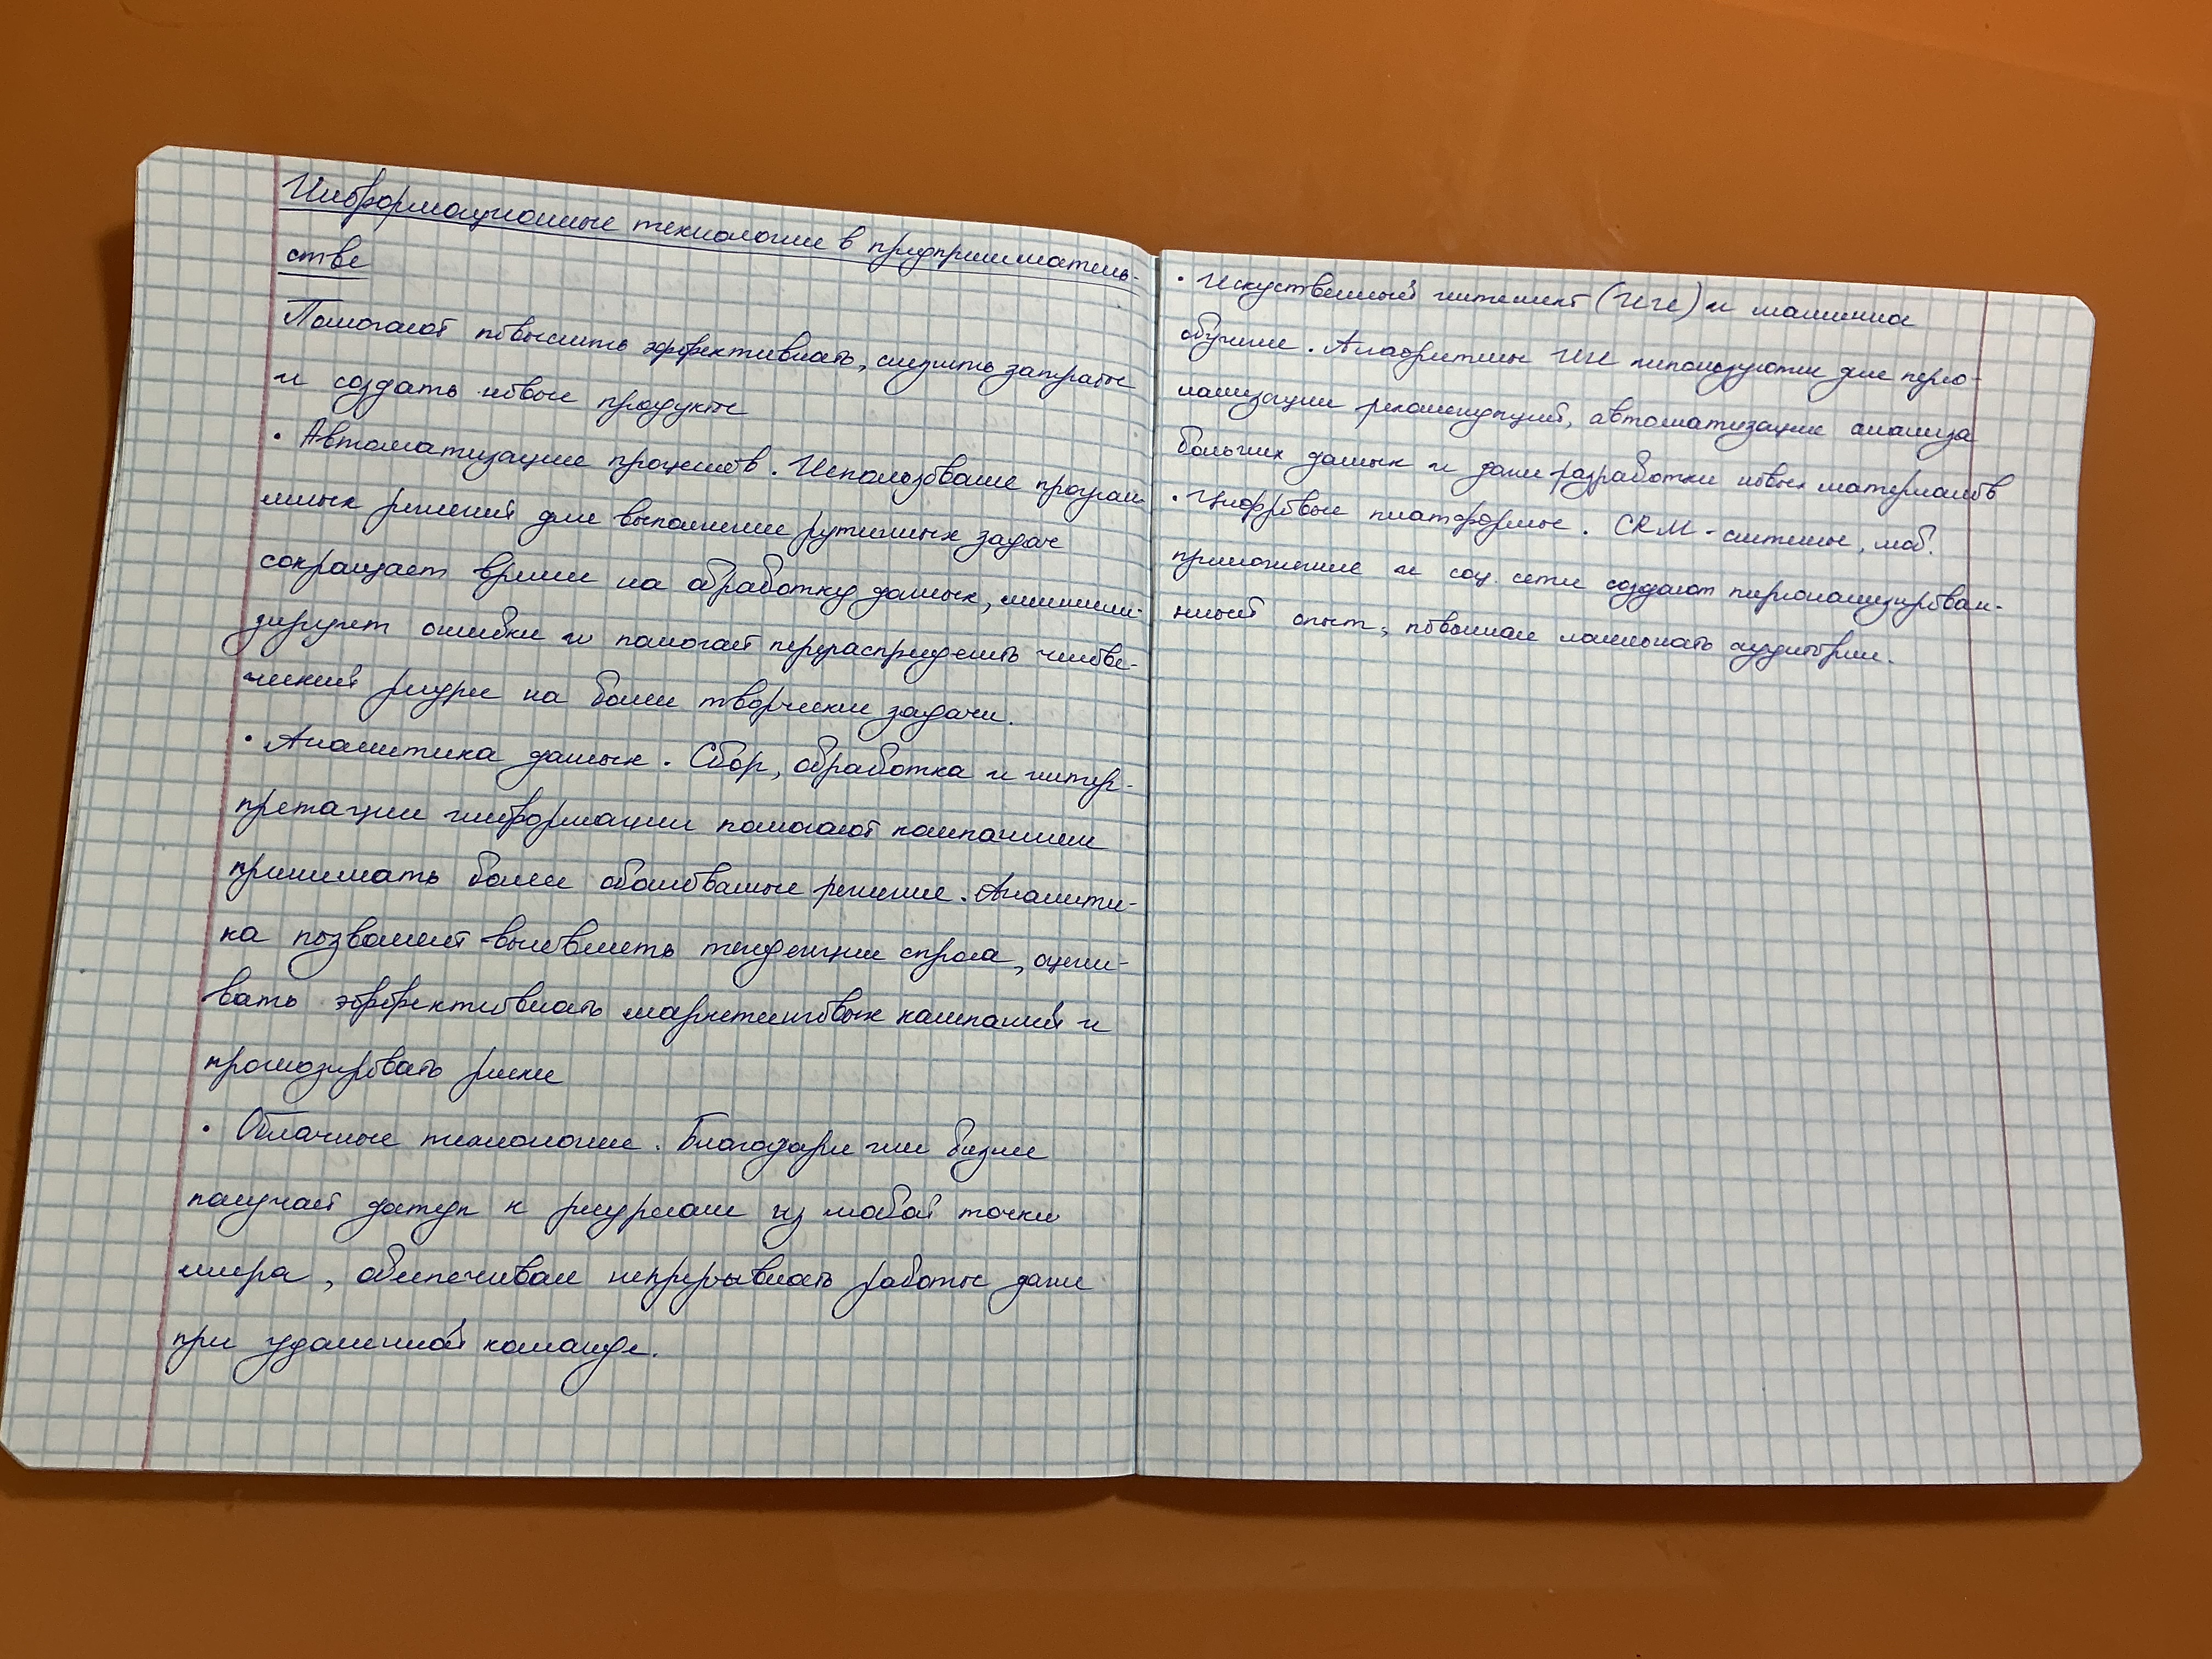 Информационные технологии в предприниматель-
стве
Помогают повысить эффективность, снизить затраты
и создать новые продукты
• Автоматизация процессов. Использование програм-
мных решений для выполнения рутинных задач
сокращает время на обработку данных, миними-
зирует ошибки и помогает перераспределить челове-
ческий ресурс на более творческие задачи.
• Аналитика данных. Сбор, обработка и интер-
претация информации помогают компаниям
принимать более обоснованные решения. Аналити-
ка позволяет выявлять тенденции спроса, оцени-
вать эффективность маркетинговых кампаний и
прогнозировать риски
• Облачные технологии. Благодаря им бизнес
получает доступ к ресурсам из любой точки
мира, обеспечивая непрерывность работы даже
при удаленной команде.
• Искуственный интелект (ИИ) и машинное
обучение. Алгоритмы ИИ используются для персо-
нализации рекомендаций, автоматизации анализа
больших данных и даже разработки новых материалов
• Цифровые платформы. CRM-системы, моб.
приложения и соц. сети создают персонализирован-
нный опыт, повышая лояльность аудитории.